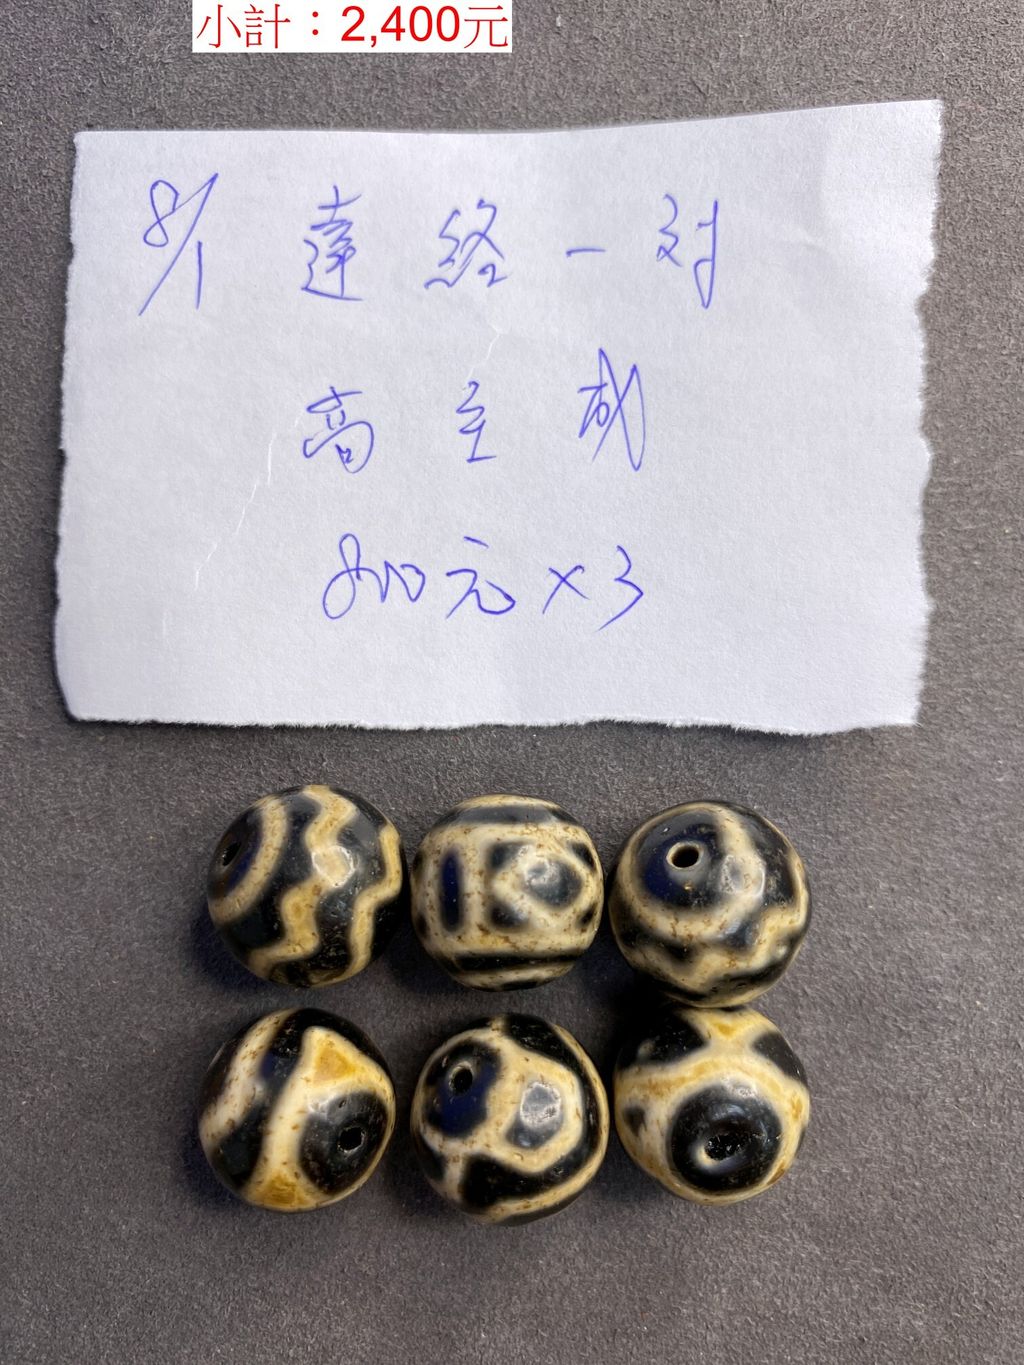 小計：2,400元
8/1 達 絡 一 对
高 主
800元 × 3